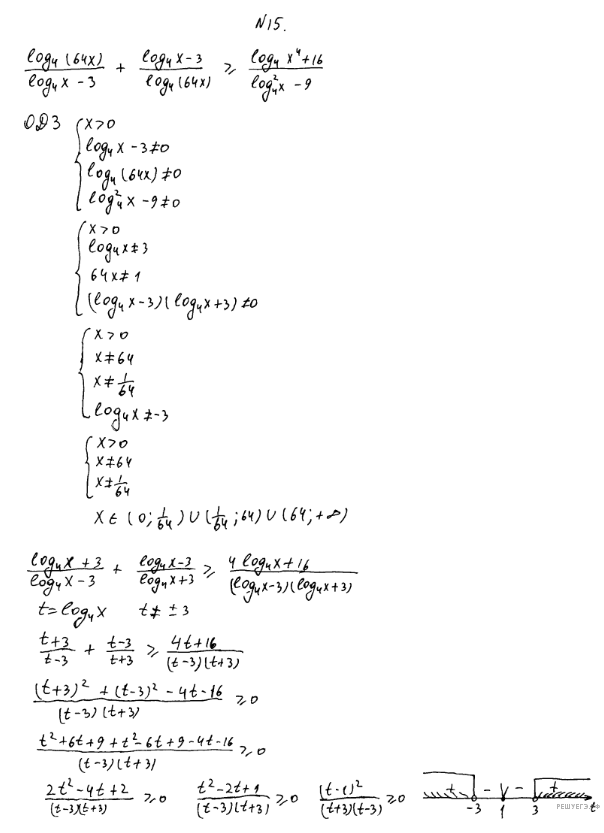 N15.
log₄(64x)/(log₄x - 3) + (log₄x - 3)/log₄(64x) ≥ (log₄x⁴ + 16)/(log₄²x - 9)
ОДЗ { x > 0
log₄x - 3 ≠ 0
log₄(64x) ≠ 0
log₄²x - 9 ≠ 0
{ x > 0
log₄x ≠ 3
64x ≠ 1
(log₄x - 3)(log₄x + 3) ≠ 0
{ x > 0
x ≠ 64
x ≠ 1/64
log₄x ≠ -3
{ x > 0
x ≠ 64
x ≠ 1/64
x ∈ (0; 1/64) ∪ (1/64; 64) ∪ (64; +∞)
(log₄x + 3)/(log₄x - 3) + (log₄x - 3)/(log₄x + 3) ≥ (4log₄x + 16)/((log₄x - 3)(log₄x + 3))
t = log₄x t ≠ ±3
(t+3)/(t-3) + (t-3)/(t+3) ≥ (4t+16)/((t-3)(t+3))
((t+3)² + (t-3)² - 4t - 16)/((t-3)(t+3)) ≥ 0
(t² + 6t + 9 + t² - 6t + 9 - 4t - 16)/((t-3)(t+3)) ≥ 0
(2t² - 4t + 2)/((t-3)(t+3)) ≥ 0 (t² - 2t + 1)/((t-3)(t+3)) ≥ 0 (t-1)²/((t+3)(t-3)) ≥ 0 + - - + -3 1 3 t
РЕШУЕГЭ.РФ